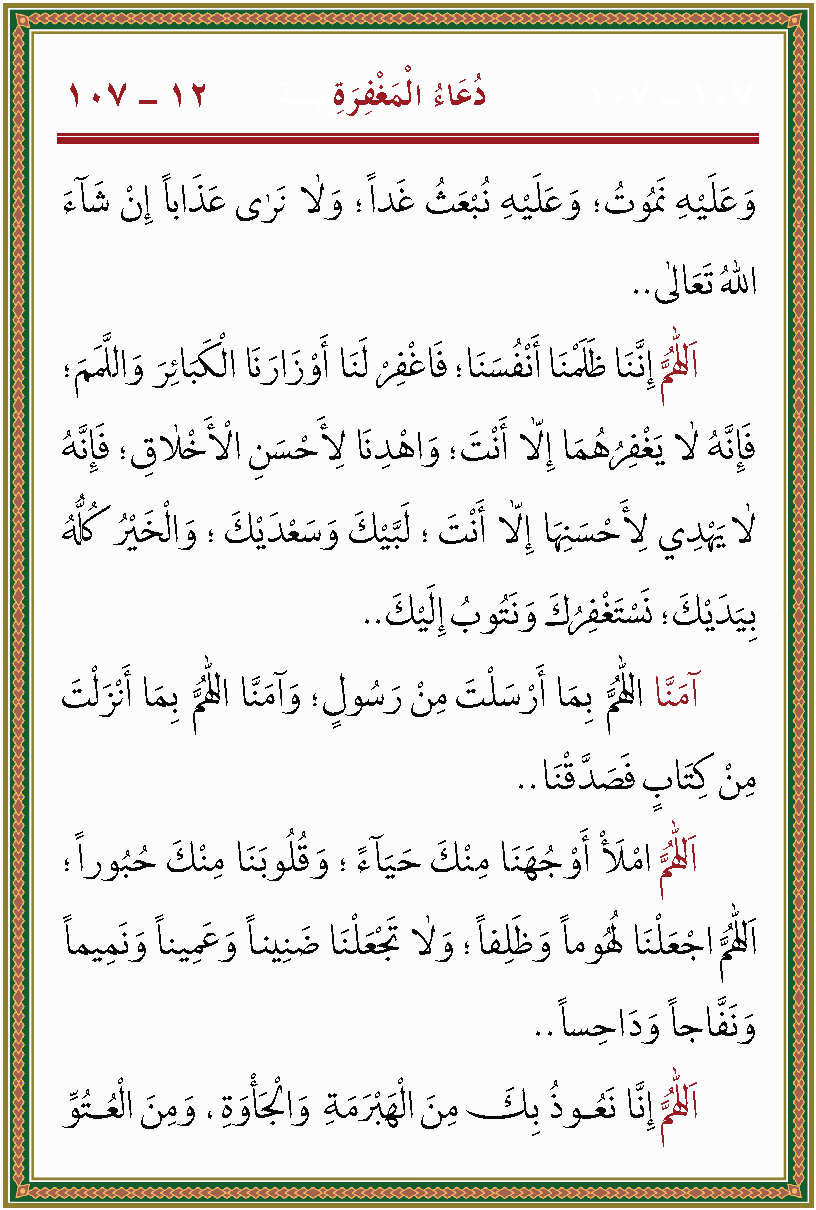 دُعَاءُ الْمَغْفِرَةِ ١٢ – ١٠٧
وَعَلَيْهِ نَمُوتُ؛ وَعَلَيْهِ نُبْعَثُ غَداً؛ وَلَا نَرٰى عَذَاباً إِنْ شَآءَ
اللهُ تَعَالٰى..
اَللّٰهُمَّ إِنَّنَا ظَلَمْنَا أَنْفُسَنَا؛ فَاغْفِرْ لَنَا أَوْزَارَنَا الْكَبَائِرَ وَاللَّمَمَ؛
فَإِنَّهُ لَا يَغْفِرُهُمَا إِلَّا أَنْتَ؛ وَاهْدِنَا لِأَحْسَنِ الْأَخْلَاقِ؛ فَإِنَّهُ
لَا يَهْدِي لِأَحْسَنِهَا إِلَّا أَنْتَ؛ لَبَّيْكَ وَسَعْدَيْكَ؛ وَالْخَيْرُ كُلُّهُ
بِيَدَيْكَ؛ نَسْتَغْفِرُكَ وَنَتُوبُ إِلَيْكَ..
آمَنَّا اللّٰهُمَّ بِمَا أَرْسَلْتَ مِنْ رَسُولٍ؛ وَآمَنَّا اللّٰهُمَّ بِمَا أَنْزَلْتَ
مِنْ كِتَابٍ فَصَدَّقْنَا..
اَللّٰهُمَّ امْلَأْ أَوْجُهَنَا مِنْكَ حَيَآءً؛ وَقُلُوبَنَا مِنْكَ حُبُوراً؛
اَللّٰهُمَّ اجْعَلْنَا لُهُوماً وَظَلِفاً؛ وَلَا تَجْعَلْنَا ضَنِيناً وَعَمِيناً وَنَمِيماً
وَنَفَّاجاً وَدَاحِساً..
اَللّٰهُمَّ إِنَّا نَعُـوذُ بِـكَ مِنَ الْهَبْرَمَةِ وَالْجَأْوَةِ، وَمِنَ الْعُـتُوِّ